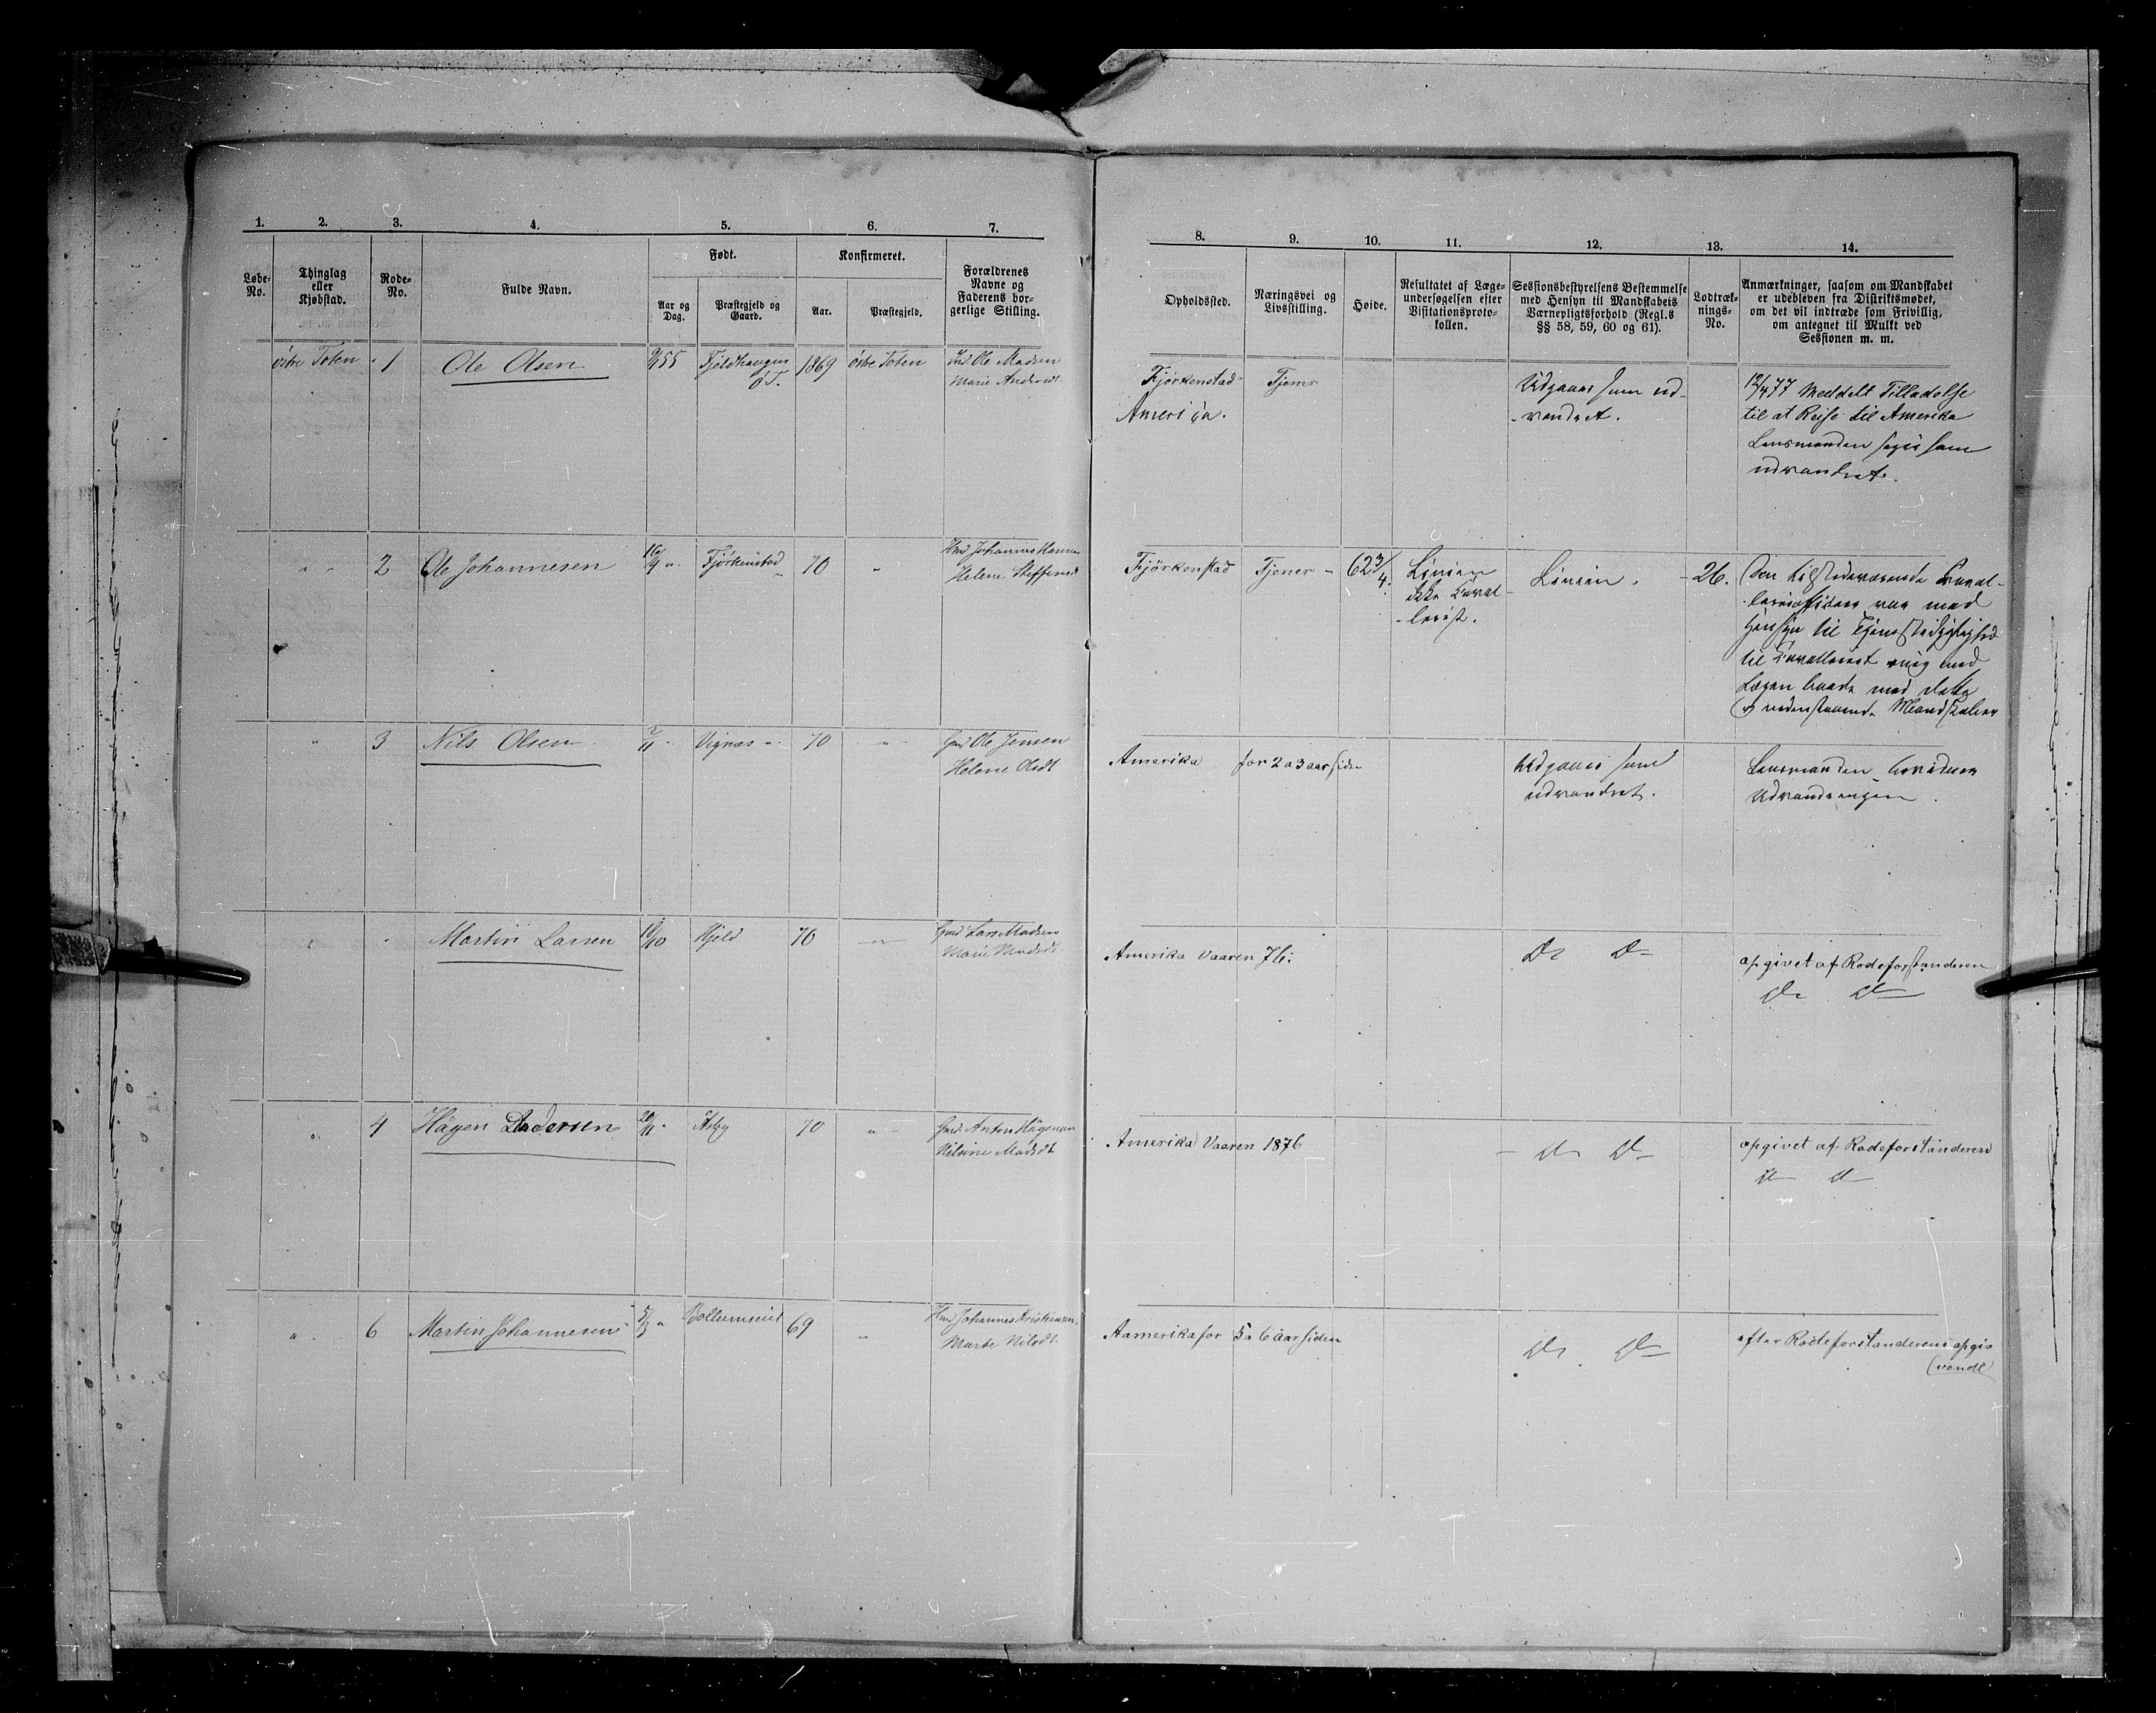 1. 2. 3. 4. 5. 6. 7.
Løbe-No.
Thinglag eller Kjøbstad.
Rode-No.
Fulde Navn.
Født.
Aar og Dag.
Præstegjeld og Gaard.
Konfirmeret.
Aar.
Præstegjeld.
Forældrenes Navne og Faderens borgerlige Stilling.
østre Toten 1 Ole Olsen 55 Fjeldhaugen 1869 østre Toten Ole Madsen
ø T. Marie Andersdt
" " 2 Ole Johannesen 16/9 " Fjørkenstad " 70 " Johannes Hansen
Helene Steffensdt
" 3 Nils Olsen 2/11 " Vignæs " 70 " Gmd Ole Jensen
Helene Olsdt
" " Martin Larsen 10/10 Hjeld 70 " Gmd Lars Madsen
Marie Madsdt
" 4 Hågen Andersen 20/11 " Åsby 70 " Gmd Anton Hågensen
Nilsine Madsdt
" 6 Martin Johannesen " Bollumseiet 69 " Hmd Johannes Kristiansen
Marte Nilsdt
8. 9. 10. 11. 12. 13. 14.
Opholdssted.
Næringsvei og Livsstilling.
Høide.
Resultatet af Lægeundersøgelsen efter Visitationsprotokollen.
Sessionsbestyrelsens Bestemmelse
med Hensyn til Mandskabets
Værnepligtsforhold (Regl.s
§§ 58, 59, 60 og 61).
Lodtræknings-No.
Anmærkninger, saasom om Mandskabet
er udebleven fra Distriktsmødet,
om det vil indtræde som Frivillig,
om antegnet til Mulkt ved
Sessionen m. m.
Fjörkenstad Tjener Udgaaes som ud- 12/4 77 Meddelt Tilladelse
Amerika. vandret. til at Reise til Amerika
Lensmanden som
udvandret.
Fjörkenstad Tjener 62 3/4 Linien Linien. 26. Den tilstedeværende Caval-
ikke Caval- leriofficer var med
lerist. Hensyn til Tjenstdygtighed
til Cavallerist enig med
Lægen baade med dette
nedenstaaende Mandskaber
Amerika for 2 a 3 aar siden Udgaaes som Lensmanden bevidner
udvandret. Udvandringen.
Amerika Vaaren 76: Do Do opgivet af Rodeforstanderen
Do Do
Amerika Vaaren 1876 Do Do opgivet af Rodeforstanderen
Do Do
Aamerika for 5 a 6 aar siden Do Do efter Rodeforstanderens opgi
(vende